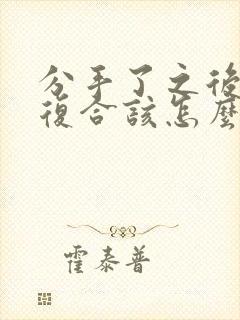 分手了之後
復合該怎麼
霍泰普